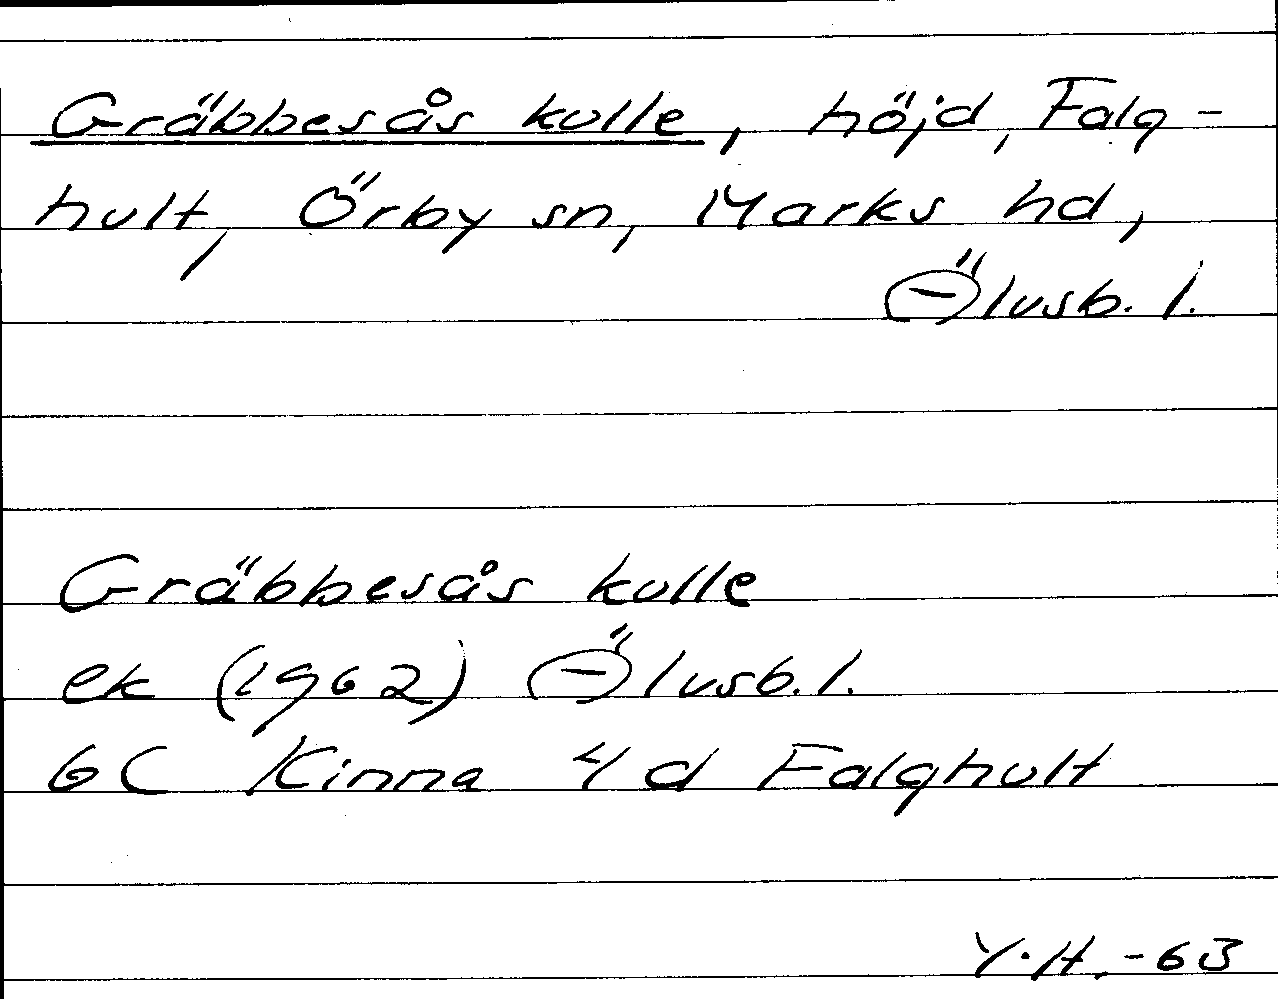 Gräbbesås kulle, höjd, Falg-
hult, Örby sn, Marks hd,
Älvsb. l.
Gräbbesås kulle
ek (1962) Älvsb. l.
6C Kinna 4 d Falghult
Y.H.-63